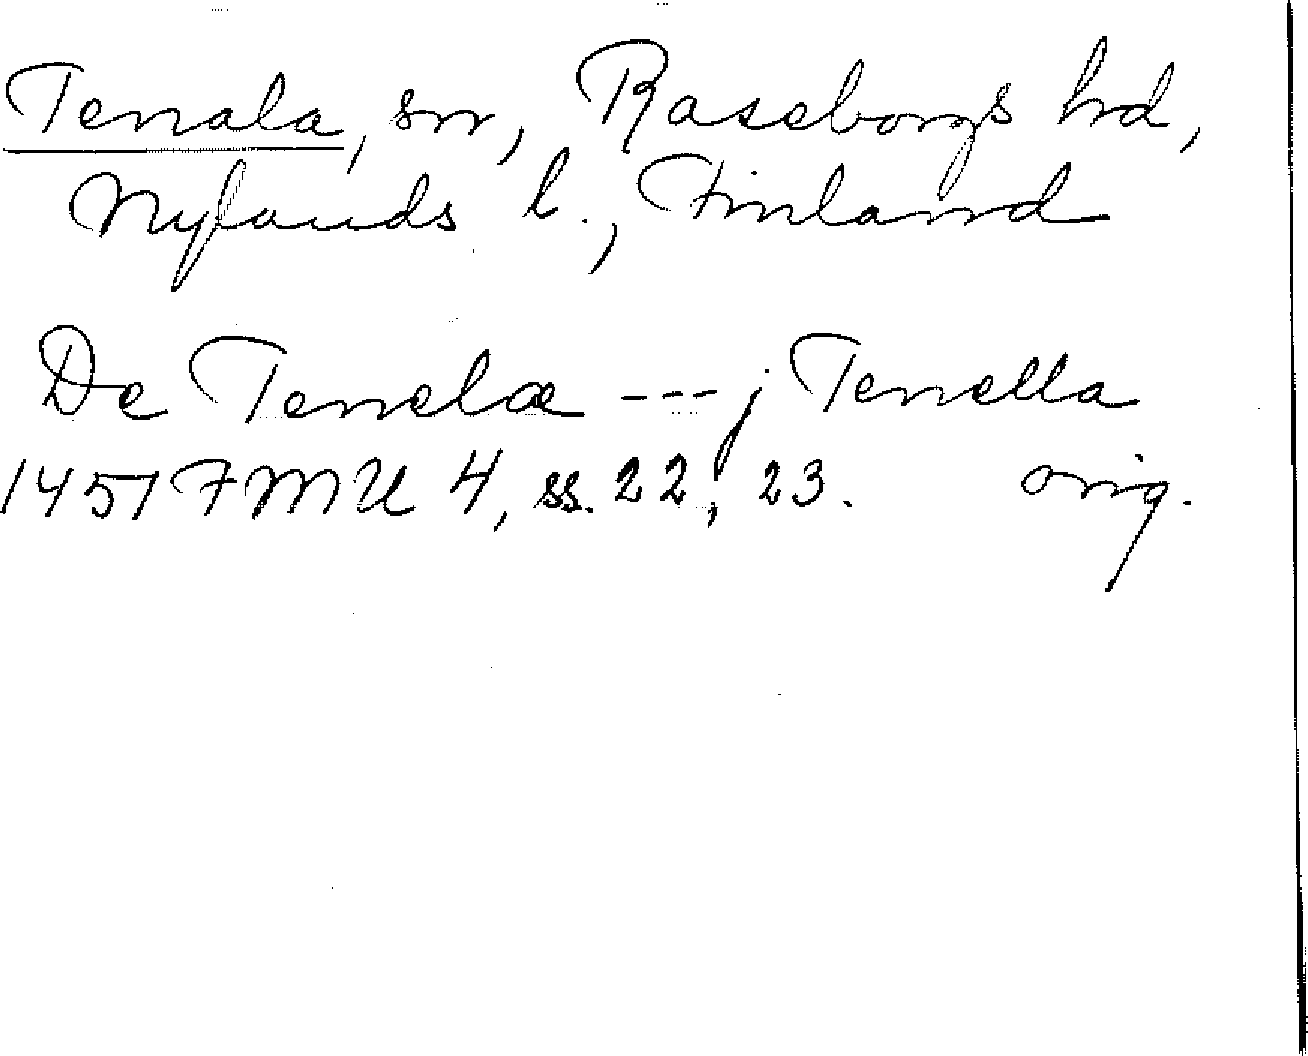 Tenala, sn, Raseborgs hd,
Nylands l., Finland
De Tenelæ --- j Tenella
1451 FMU 4, ss. 22, 23. orig.